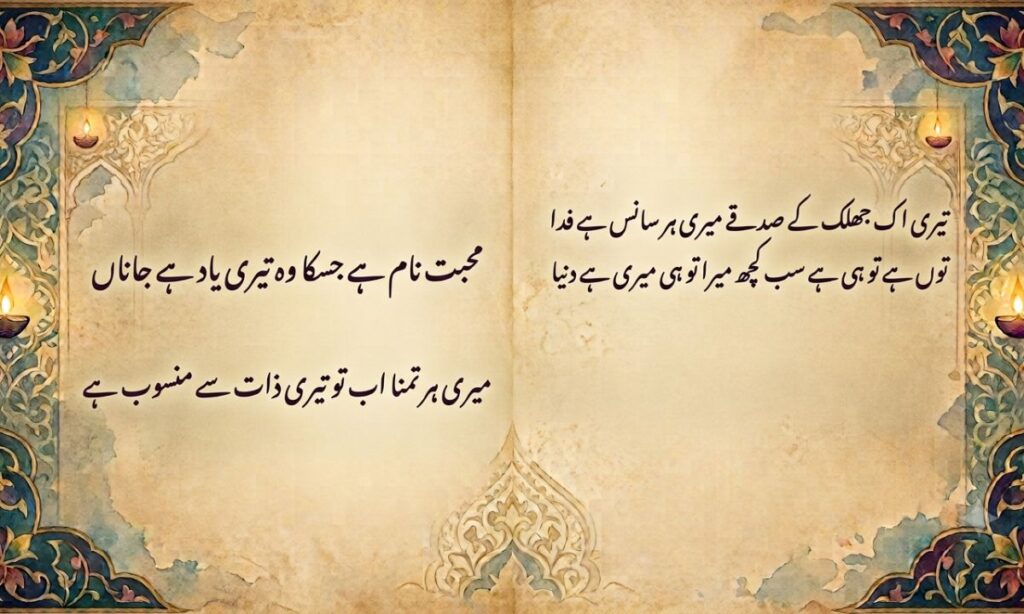 تیری اک جھلک کے صدقے میری ہر سانس ہے فدا
توں ہے تو ہی ہے سب کچھ میرا تو ہی میری ہے دنیا
محبت نام ہے جسکا وہ تیری یاد ہے جاناں
میری ہر تمنا اب تو تیری ذات سے منسوب ہے